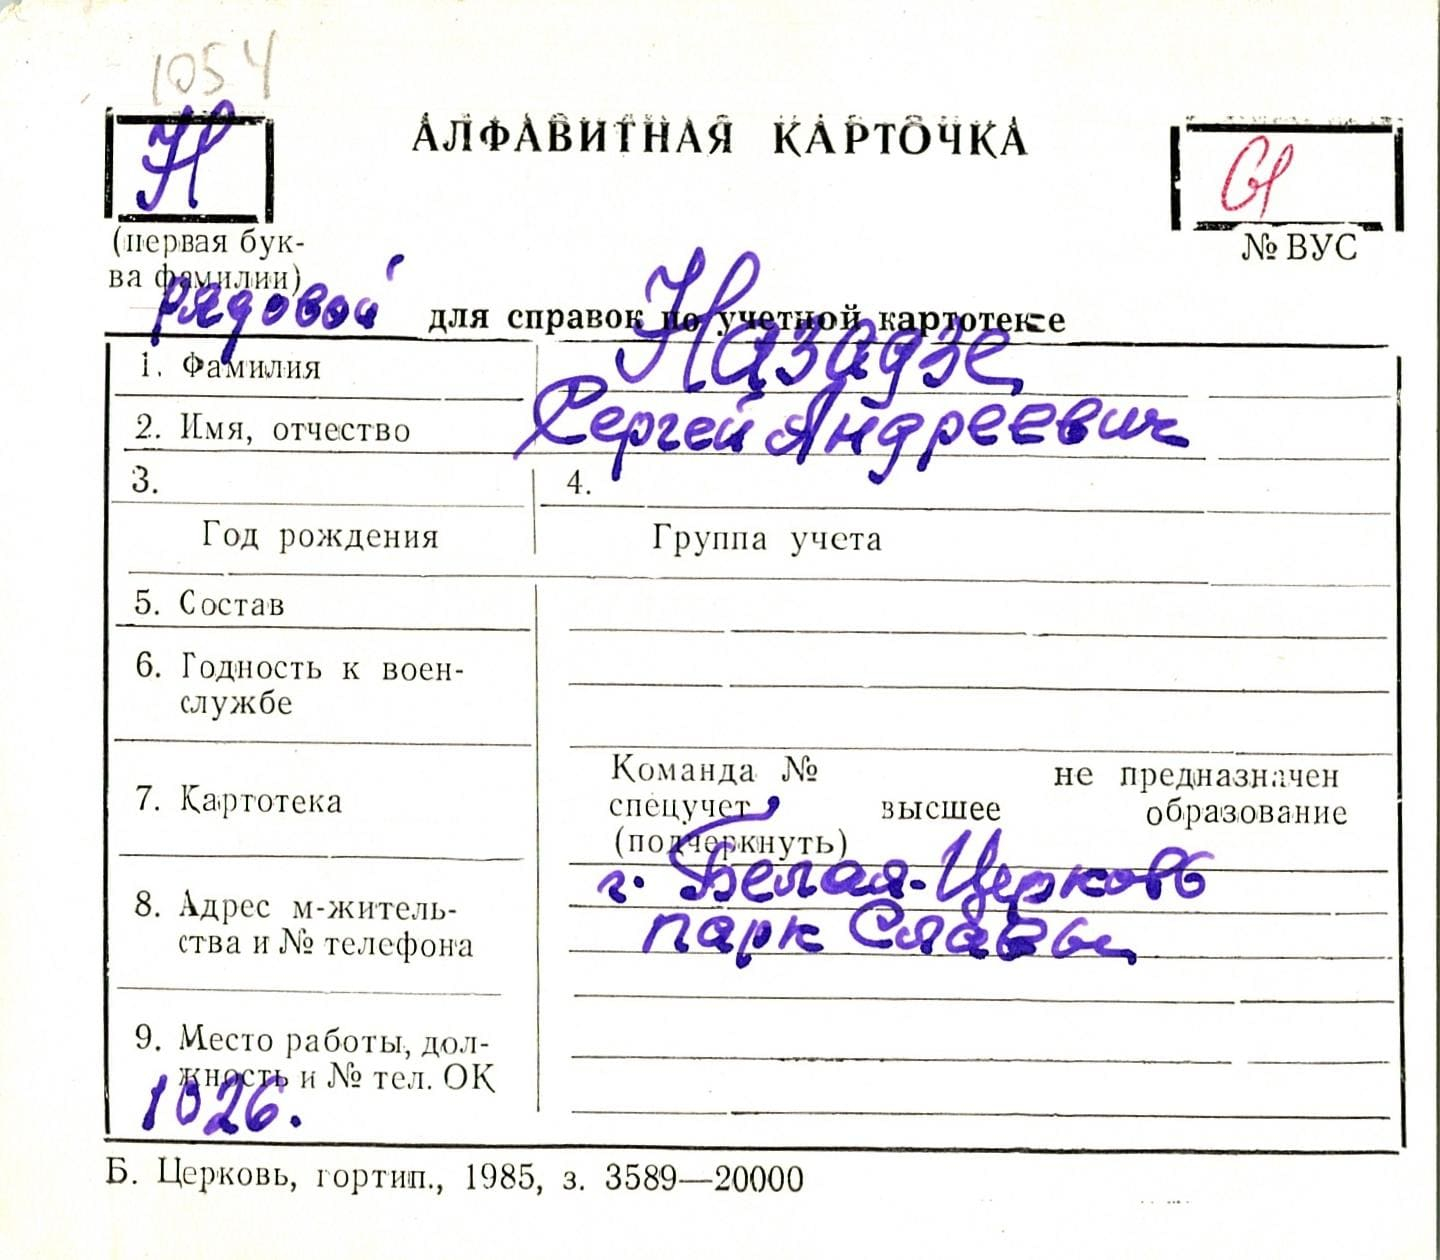 1054
Н
АЛФАВИТНАЯ КАРТОЧКА
(первая бук-
ва фамилии)
№ ВУС
рядовой
для справок по учетной картотеке
1. Фамилия Назадзе
2. Имя, отчество Сергей Андреевич
3. 4.
Год рождения Группа учета
5. Состав
6. Годность к воен-
службе
7. Картотека
Команда № не предназначен
спецучет высшее образование
(подчеркнуть)
8. Адрес м-житель-
ства и № телефона
г. Белая-Церковь
парк Славы
9. Место работы, дол-
жность и № тел. ОК
1026.
Б. Церковь, гортип., 1985, з. 3589—20000